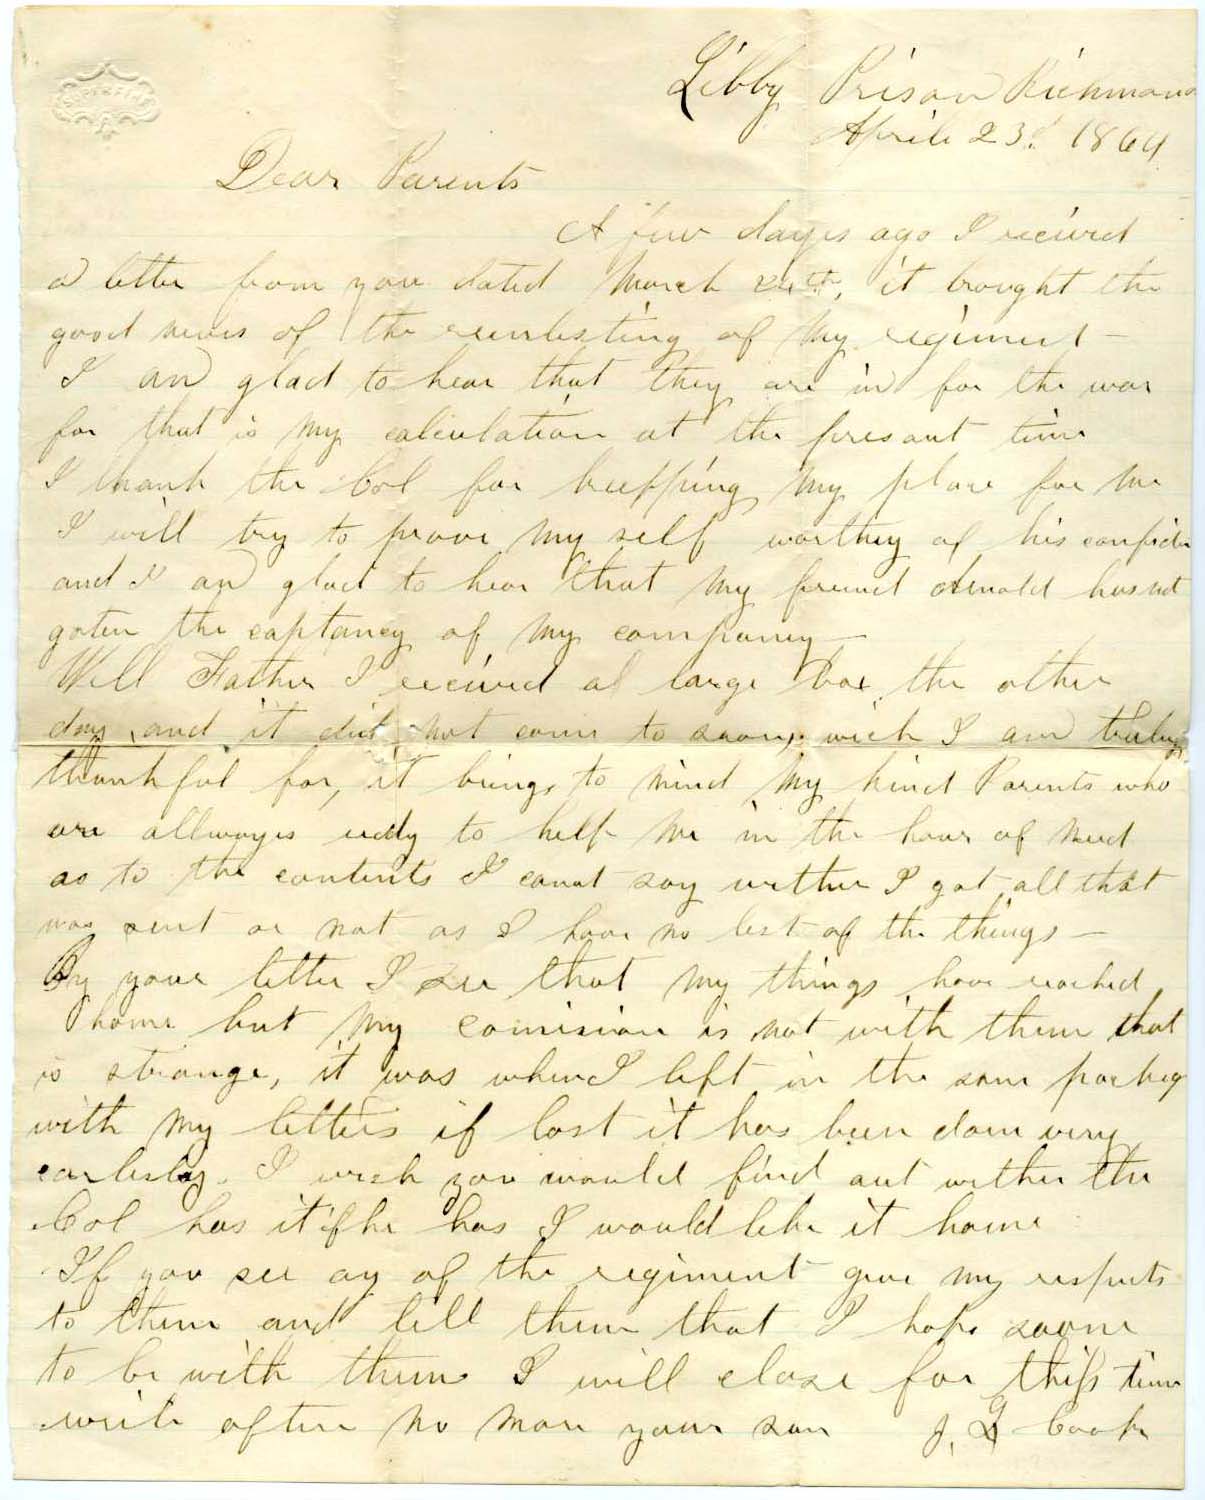 Libby Prison Richmond
Aprile 23d 1864
Dear Parents
A few dayes ago I recived
a letter from you dated March 24th, it brought the
good news of the reenlisting of my regiment—
I am glad to hear that they are in for the war
for that is my calculation at the presant time
I thank the Col for keepping my place for me
I will try to prove my self worthey of his confide
and I am glad to hear that my freind Arnold has not
goten the captancy of my company—
Well Father I recived a large box the other
day and it did not come to soon, wich I am truley
thankful for, it brings to mind my kind Parents who
are allwayes redy to help me in the hour of need
as to the contents I canot say wether I got all that
was sent or not as I have no list of the things—
By your letter I see that my things have reached
home but my comision is not with them that
is strange, it was when I left in the same packeg
with my letters if lost it has been don very
carlesly. I wish you would find out wether the
Col has it if he has I would like it home
If you see any of the regiment give my respects
to them and tell them that I hope soone
to be with them I will close for this time
write often no more your son J. G Cook